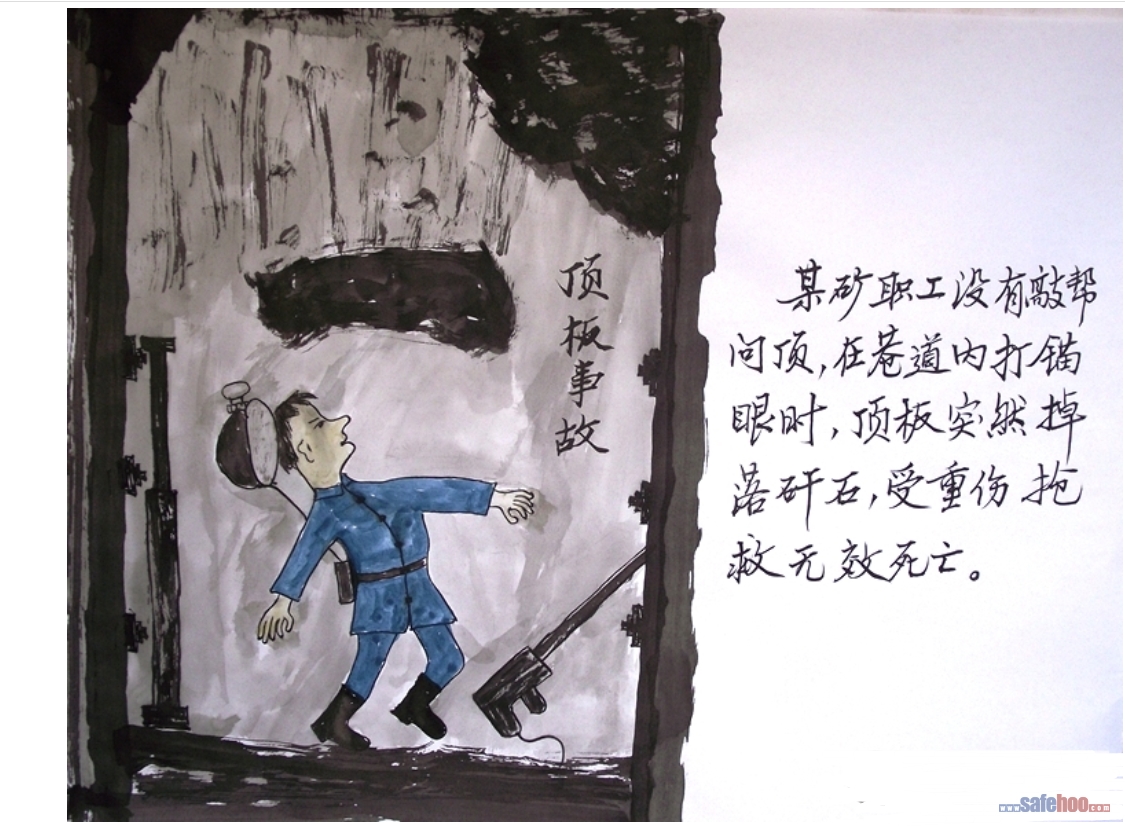 顶板事故
某矿职工没有敲帮
问顶,在巷道内打锚
眼时,顶板突然掉
落矸石,受重伤抢
救无效死亡。
www.safehoo.com